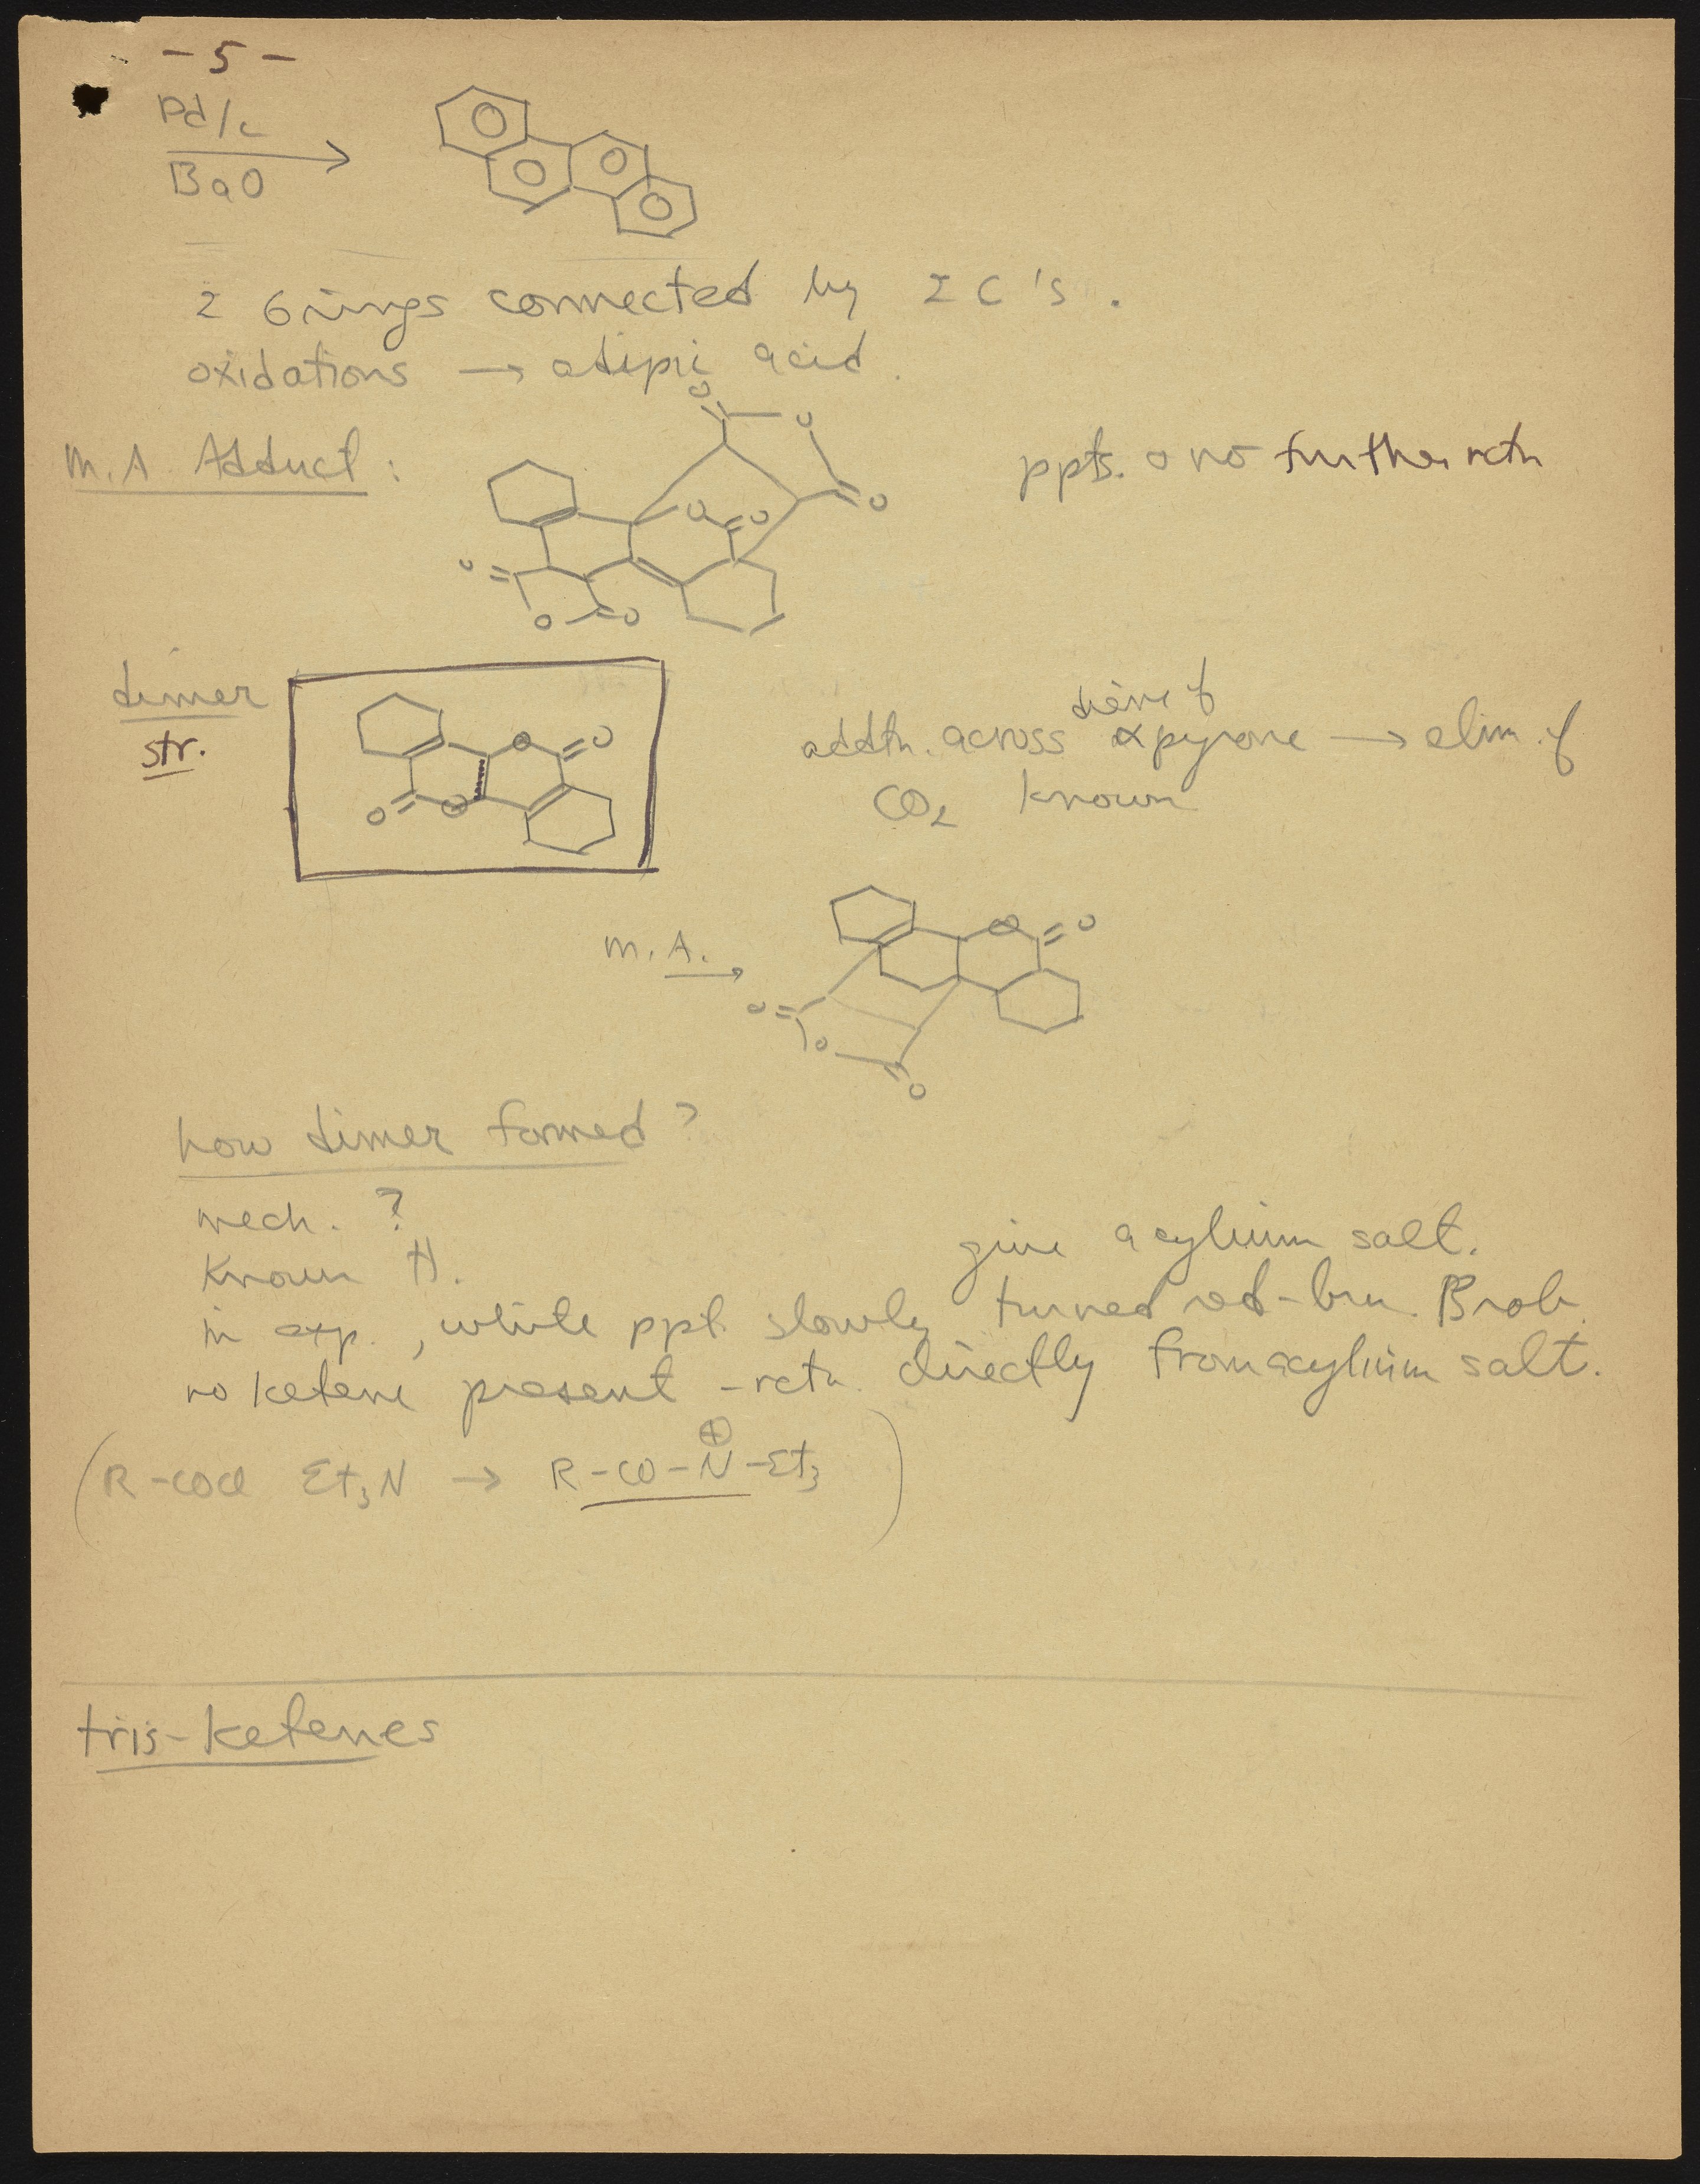 - 5 -
Pd/c
BaO
2 6 rings connected by 2 C's.
oxidations → adipic acid.
M.A. Adduct:
ppts. no further rctn
O
O
O
O
O
O
O
O
dimer
str.
O
O
O
O
addtn. across diene of α pyrone → elim. of
CO2 known
M.A.
O
O
O
O
O
how dimer formed?
mech. ?
Known
give acylium salt.
in exp., white ppt. slowly turned red-brn. Prob.
no ketene present - rctn. directly from acylium salt.
(R-COCl Et3N → R-CO-N⊕-Et3)
tris-ketenes